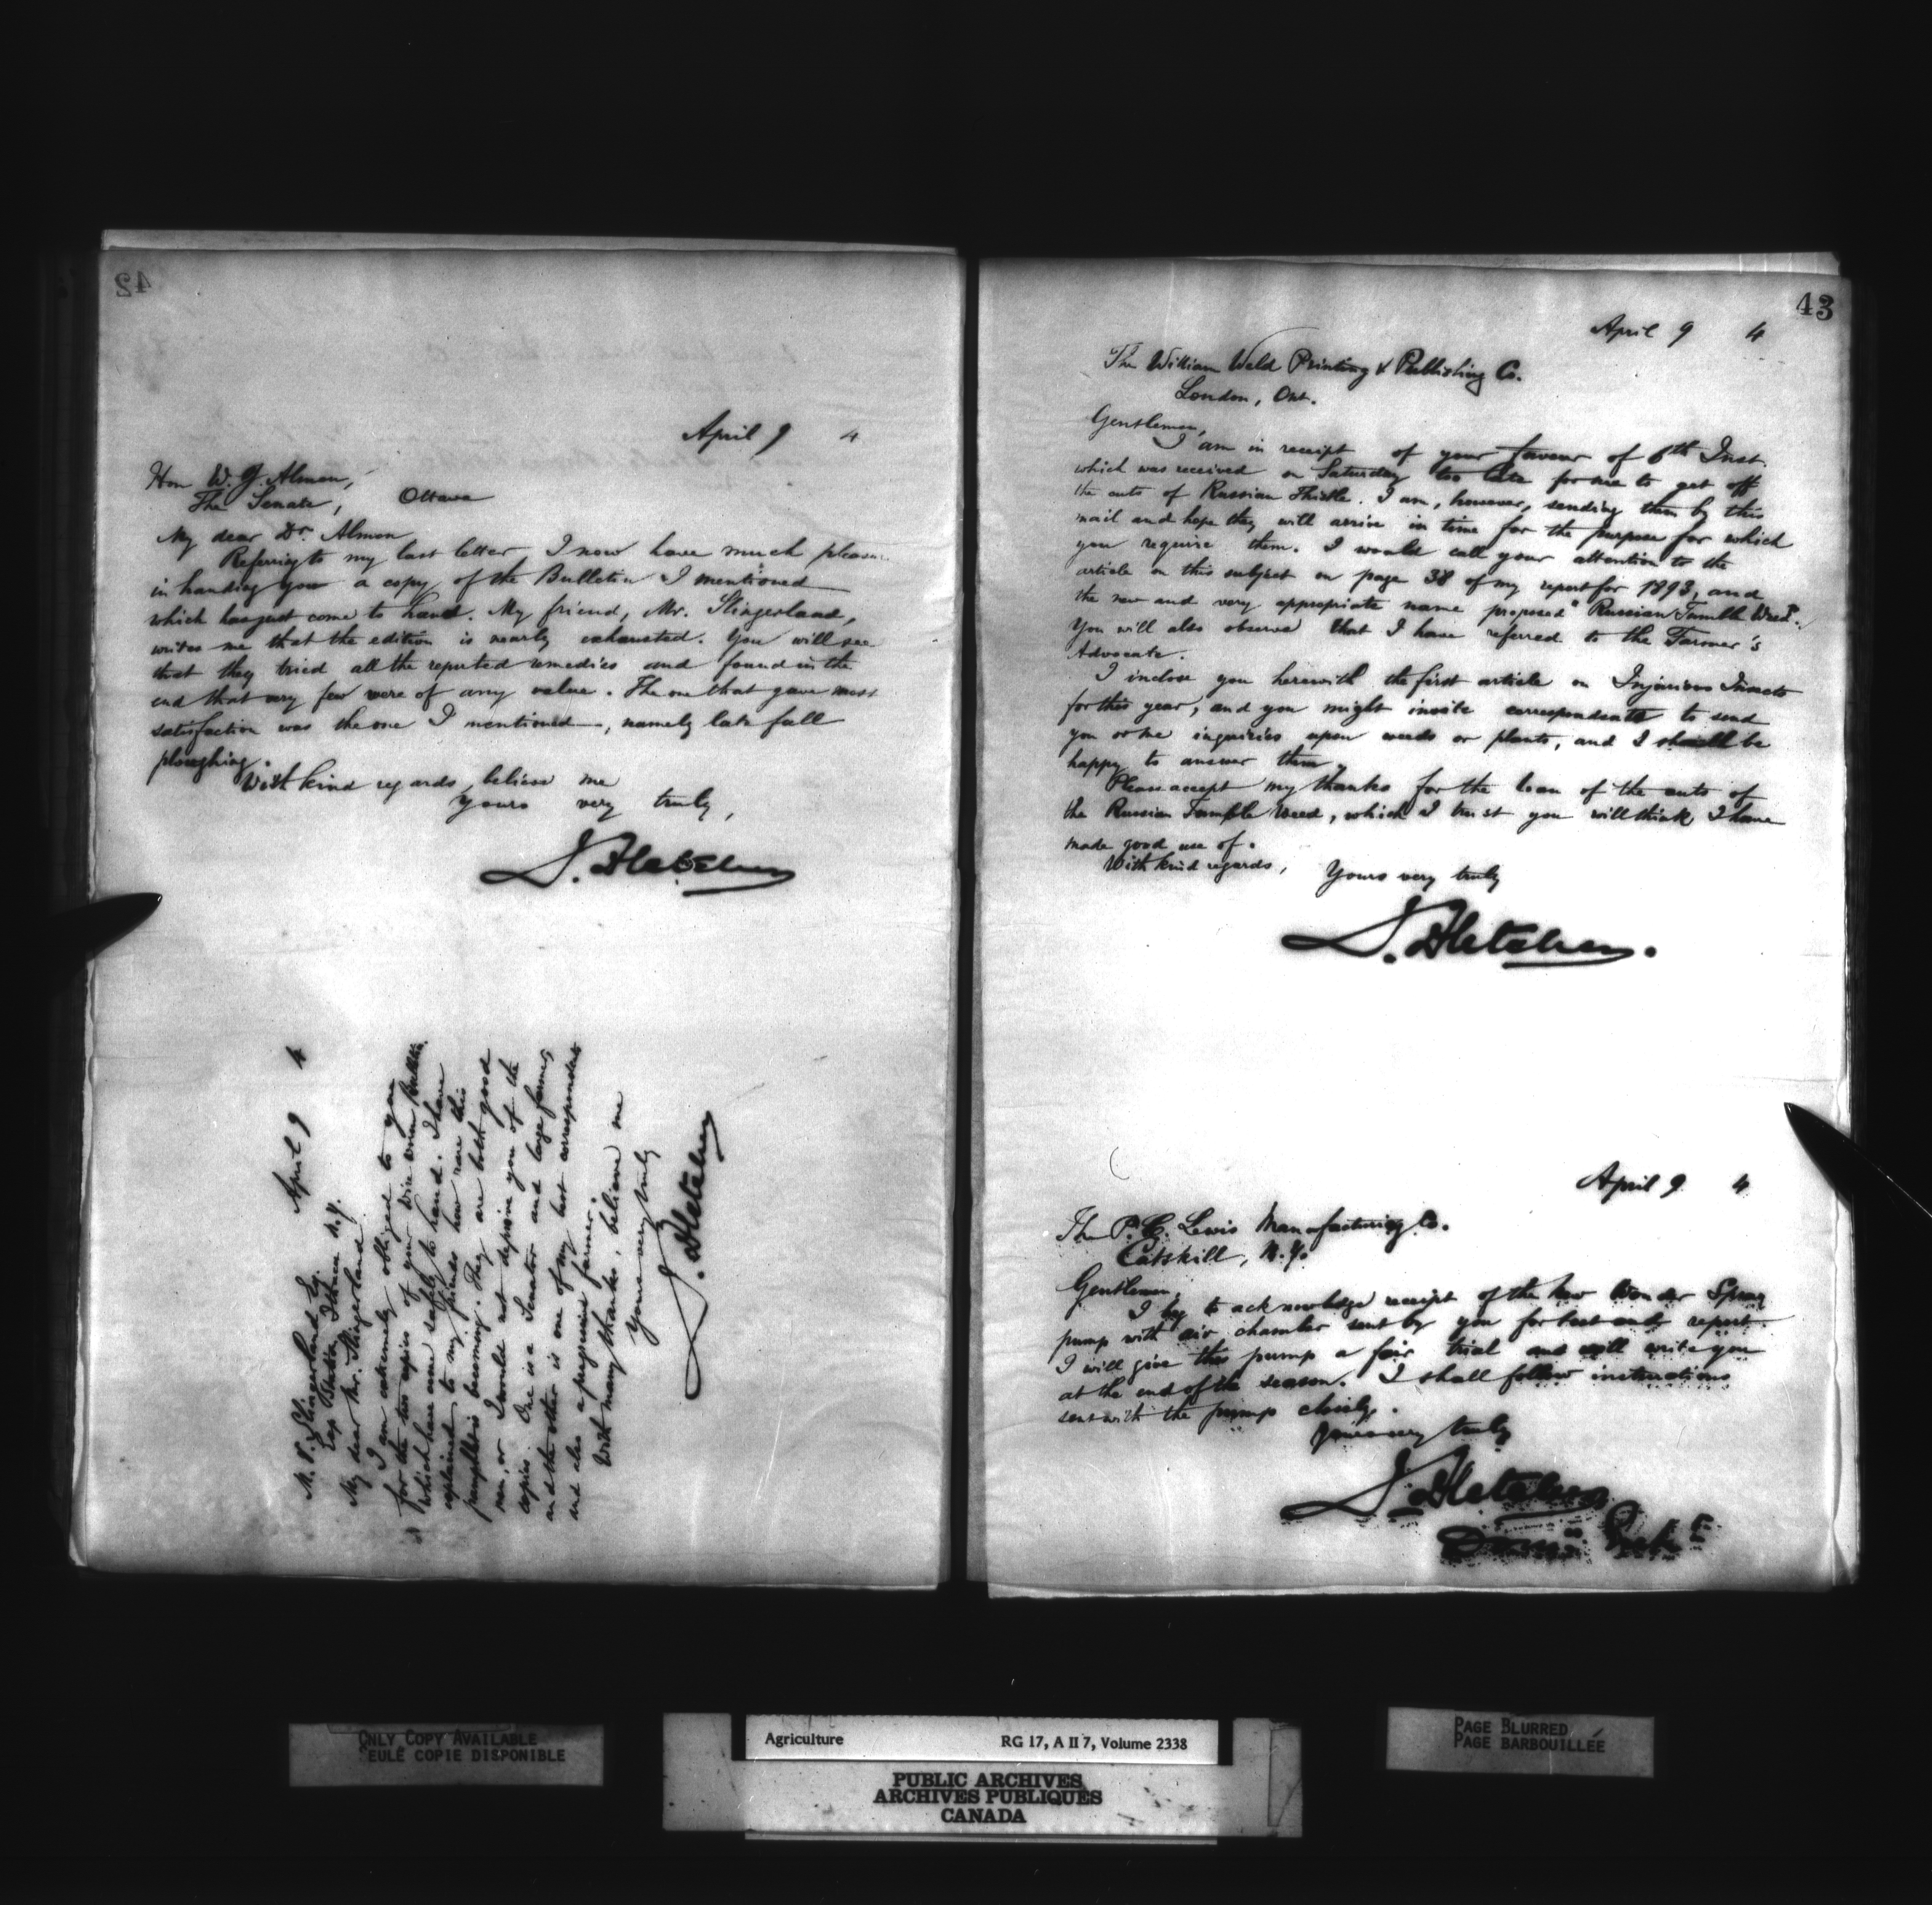 42
April 9 4
Hon W. J. Almon,
The Senate, Ottawa
My dear Dr. Almon
Referring to my last letter, I now have much pleasure
in handing you a copy of the Bulletin I mentioned
which has just come to hand. My friend, Mr. Slingerland,
writes me that the edition is nearly exhausted. You will see
that they tried all the reputed remedies and found in the
end that very few were of any value. The one that gave most
satisfaction was the one I mentioned, namely late fall
ploughing.
With kind regards, believe me
Yours very truly,
J. Fletcher
April 9 4
M. V. Slingerland Esq.
Exp Station Ithaca N.Y.
My dear Mr. Slingerland
I am extremely obliged to you
for the two copies of your Wire worm Bulletin
which have come safely to hand. I have
explained to my friends how rare this
pamphlet is becoming. They are both good
men, or I would not deprive you of the
copies. One is a Senator and large farmer,
and the other is one of my best correspondents
and also a progressive farmer.
With many thanks, believe me
Yours very truly
J. Fletcher
43
April 9 4
The William Weld Printing & Publishing Co.
London, Ont.
Gentlemen,
I am in receipt of your favour of 6th Inst.
which was received on Saturday too late for me to get off
the cuts of Russian Thistle. I am, however, sending them by this
mail and hope they will arrive in time for the purpose for which
you require them. I would call your attention to the
article on this subject on page 38 of my report for 1893, and
the new and very appropriate name proposed "Russian Tumble Weed".
You will also observe that I have referred to the Farmer's
Advocate.
I inclose you herewith the first article on Injurious Insects
for this year, and you might invite correspondents to send
you or me inquiries upon weeds or plants, and I shall be
happy to answer them.
Please accept my thanks for the loan of the cuts of
the Russian Tumble Weed, which I trust you will think I have
made good use of.
With kind regards, Yours very truly
J. Fletcher.
April 9 4
The P. C. Lewis Manufacturing Co.
Catskill, N.Y.
Gentlemen,
I beg to acknowledge receipt of the New Wonder Spray
pump with air chamber sent by you for test and report.
I will give this pump a fair trial and will write you
at the end of the season. I shall follow instructions
sent with the pump closely.
Yours very truly
J. Fletcher
ONLY COPY AVAILABLE
SEULE COPIE DISPONIBLE
Agriculture RG 17, A II 7, Volume 2338
PUBLIC ARCHIVES
ARCHIVES PUBLIQUES
CANADA
PAGE BLURRED
PAGE BARBOUILLÉE